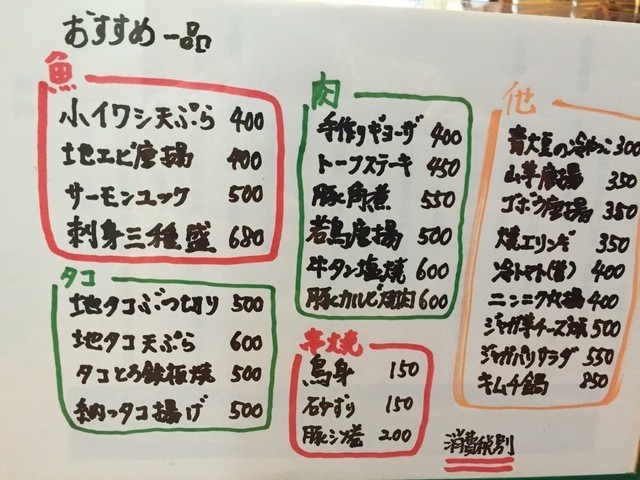 おすすめ一品
魚
小イワシ天ぷら 400
地エビ唐揚 400
サーモンユック 500
刺身三種盛 680
タコ
地タコぶつ切り 500
地タコ天ぷら 600
タコとろ鉄板焼 500
納っタコ揚げ 500
肉
手作りギョーザ 400
トーフステーキ 450
豚と角煮 550
若鳥唐揚 500
牛タン塩焼 600
豚とカルビ焼肉 600
串焼
鳥身 150
石ずり 150
豚とシソ巻 200
他
青大豆の冷やっこ 300
山芋唐揚 350
ゴボウ唐揚 350
焼エリンギ 350
冷トマト(営) 400
ニンニク丸揚 400
ジャガ芋チーズ焼 500
ジャガバリサラダ 550
キムチ鍋 850
消費税別